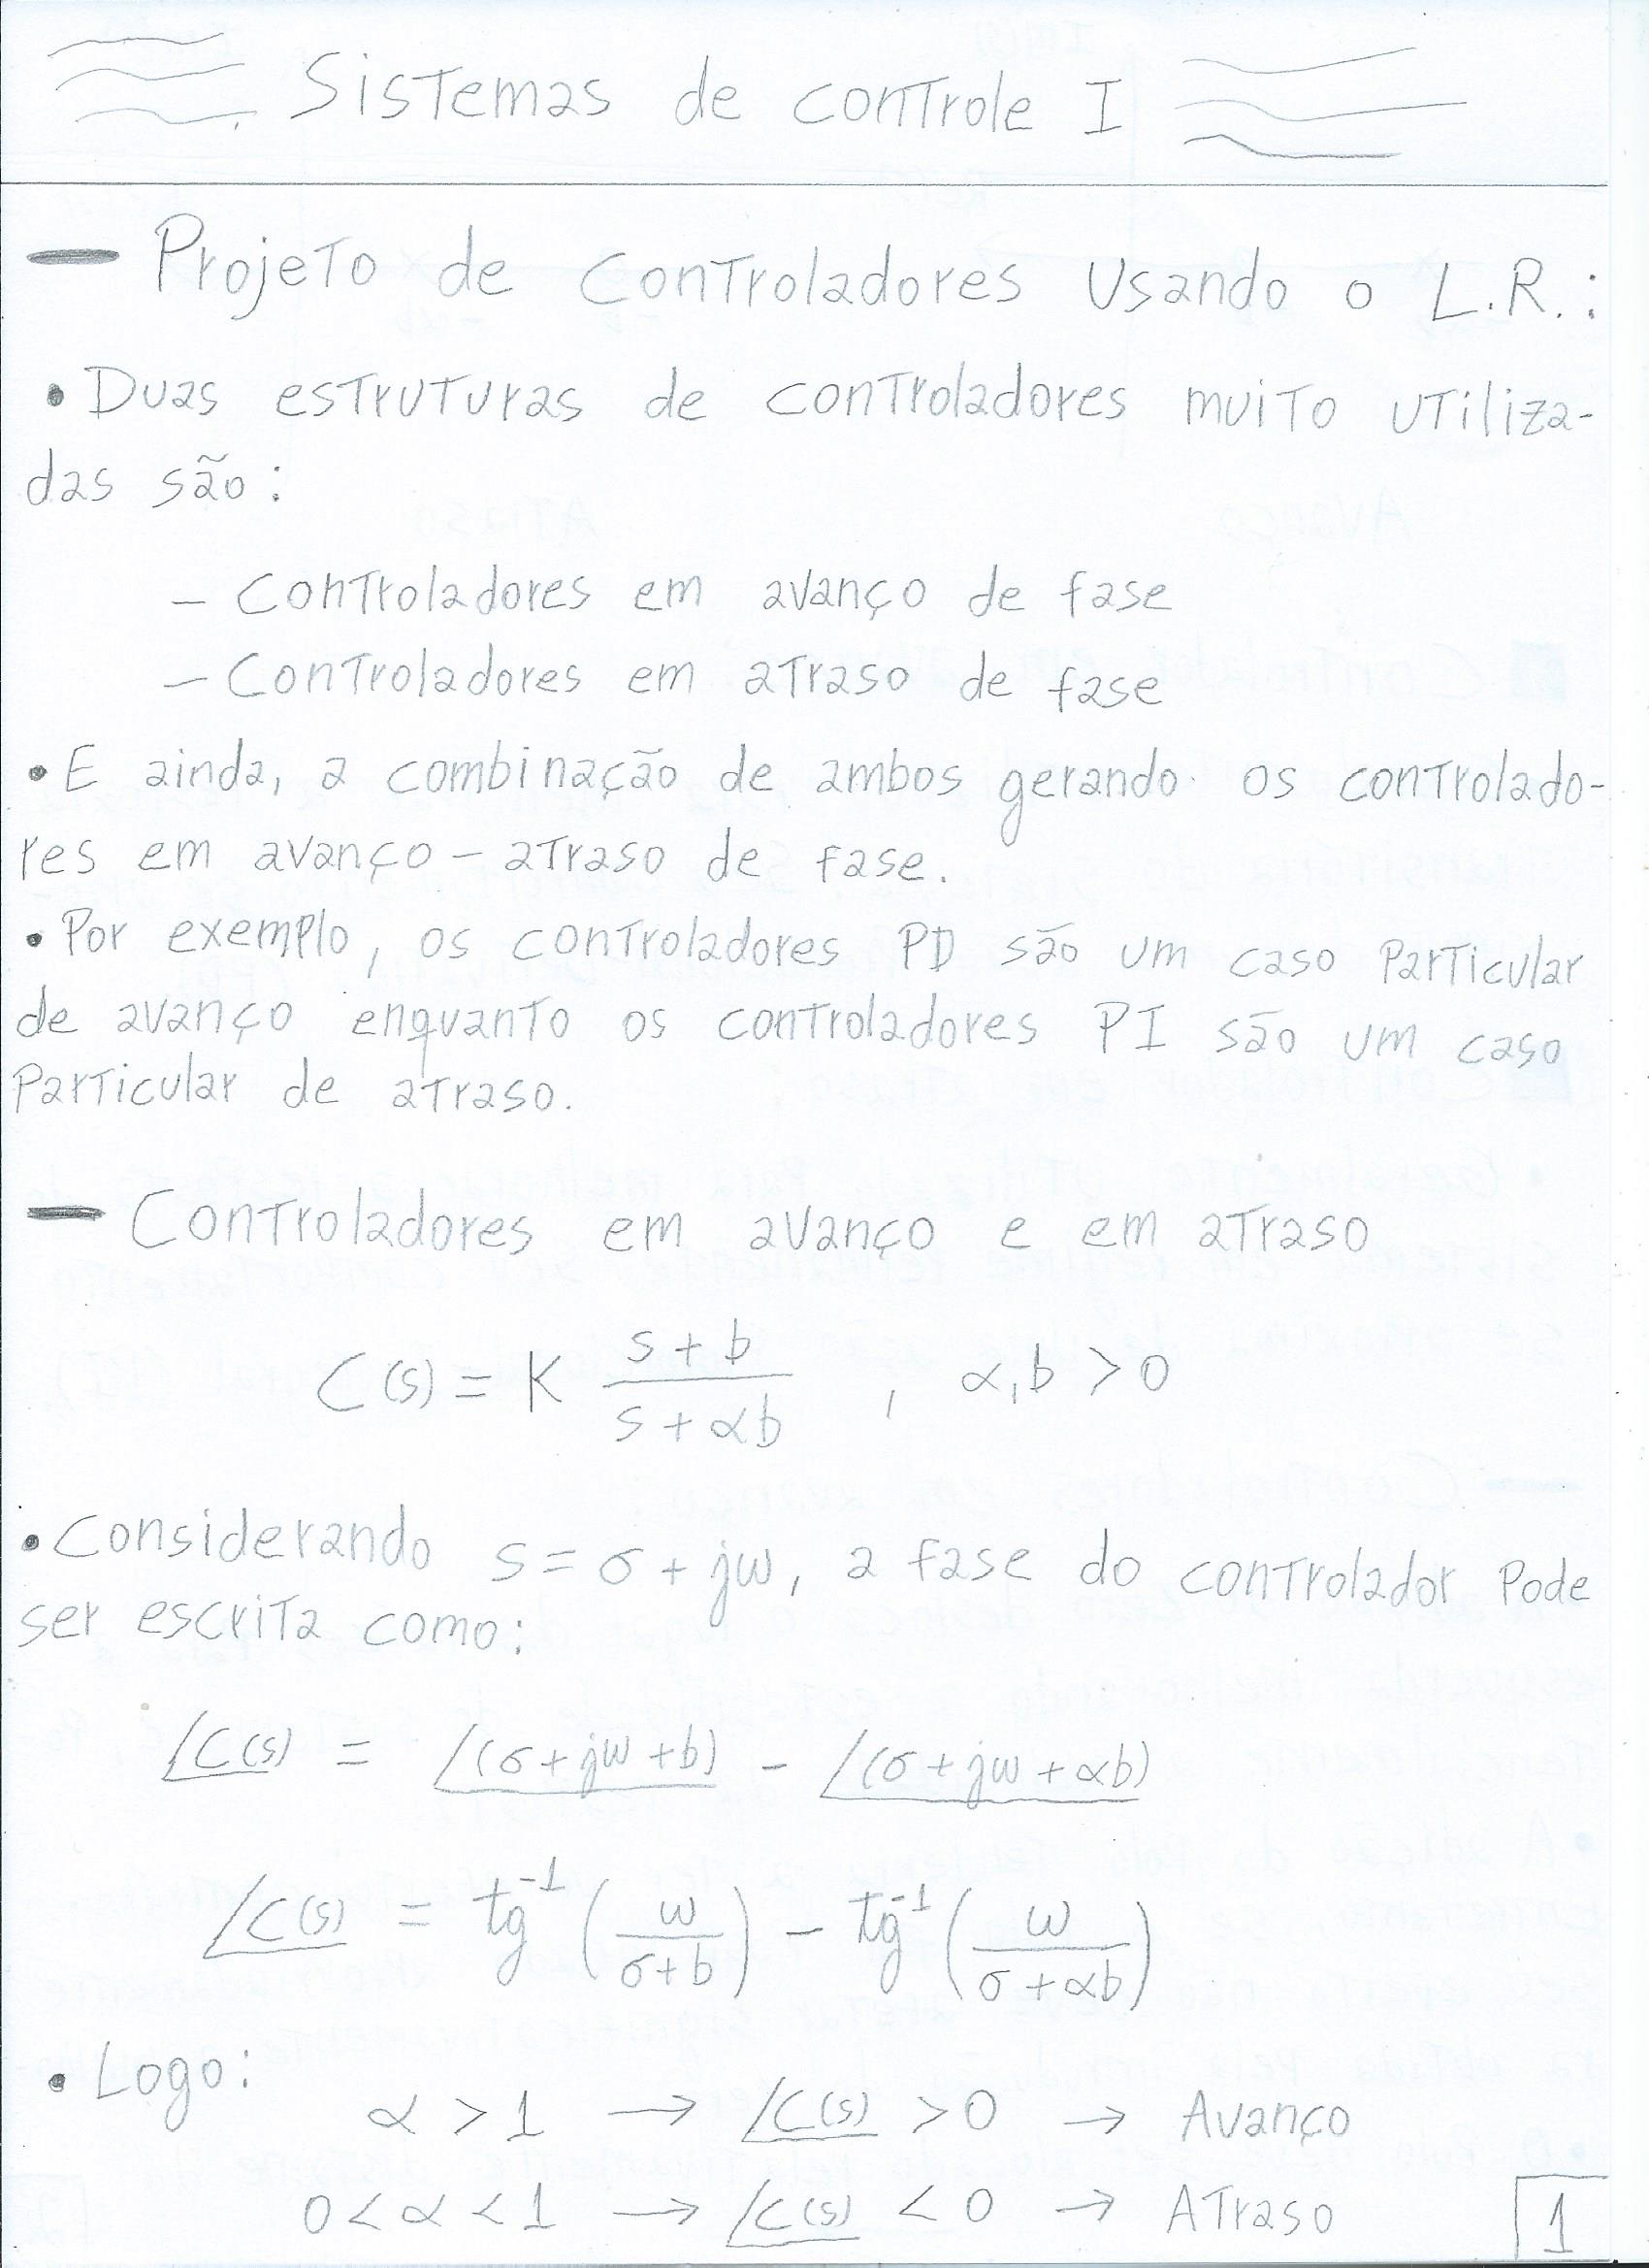 Sistemas de controle I
— Projeto de controladores usando o L.R.:
• Duas estruturas de controladores muito utiliza-
das são:
- Controladores em avanço de fase
- Controladores em atraso de fase
• E ainda, a combinação de ambos gerando os controlado-
res em avanço-atraso de fase.
• Por exemplo, os controladores PD são um caso particular
de avanço enquanto os controladores PI são um caso
particular de atraso.
— Controladores em avanço e em atraso
C(s) = K (s+b)/(s+αb) , α,b > 0
• Considerando s = σ + jω, a fase do controlador pode
ser escrita como:
∠C(s) = ∠(σ+jω+b) - ∠(σ+jω+αb)
∠C(s) = tg⁻¹(ω/(σ+b)) - tg⁻¹(ω/(σ+αb))
• Logo:
α > 1 → ∠C(s) > 0 → Avanço
0 < α < 1 → ∠C(s) < 0 → Atraso
1